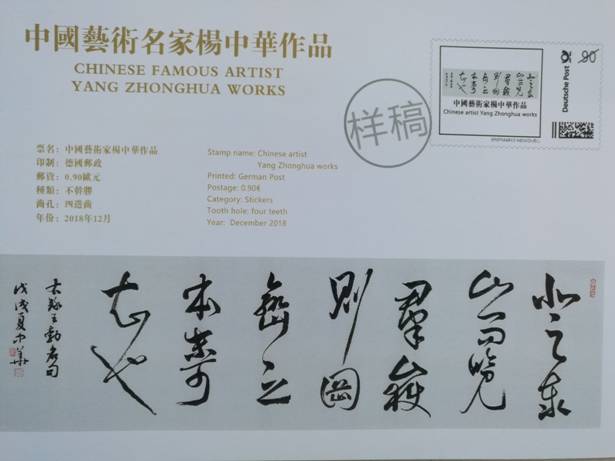 中國藝術名家楊中華作品
CHINESE FAMOUS ARTIST
YANG ZHONGHUA WORKS
90
Deutsche Post
中國藝術名家楊中華作品
Chinese artist Yang Zhonghua works
样稿
票名：中國藝術家楊中華作品
印制：德國郵政
郵資：0.90歐元
種類：不幹膠
齒孔：四邉齒
年份：2018年12月
Stamp name: Chinese artist
Yang Zhonghua works
Printed: German Post
Postage: 0.90€
Category: Stickers
Tooth hole: four teeth
Year: December 2018
之泰
山而覽
羣嶽
則岡
巒之
本末可
知也
右録王勃名句
戊戌夏中華